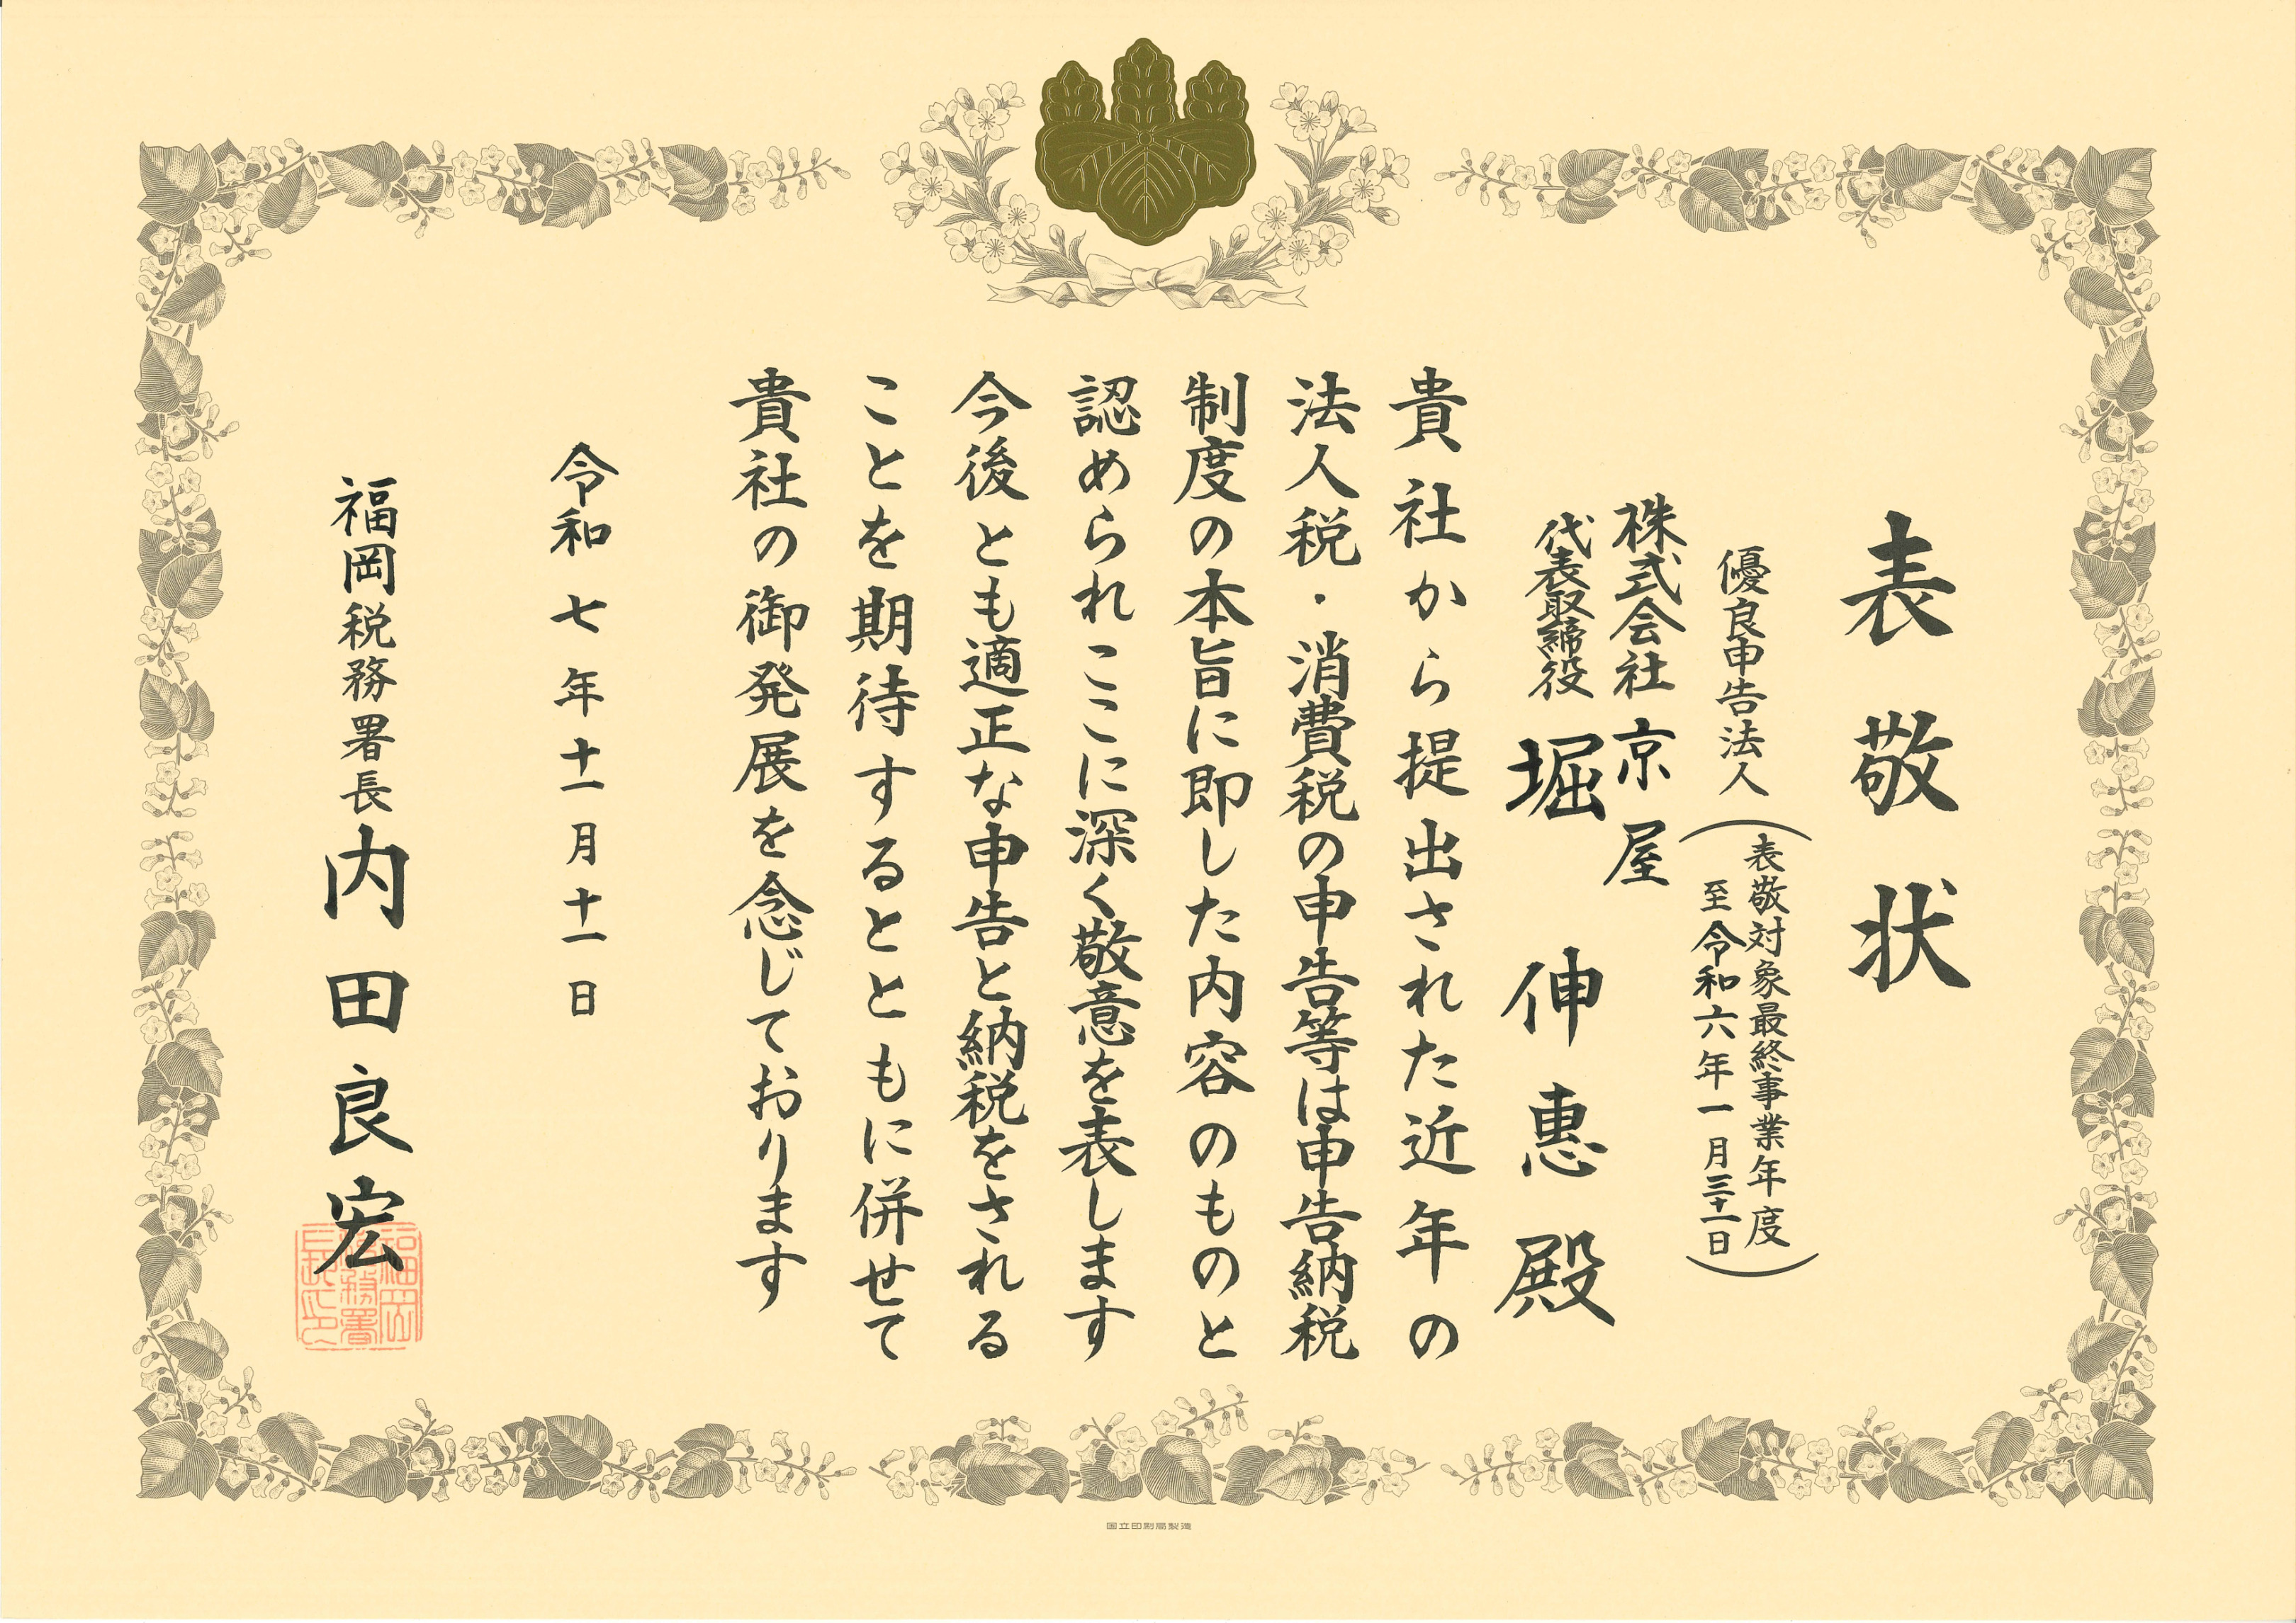 表敬状
優良申告法人
(表敬対象最終事業年度
至令和六年一月三十一日)
株式会社 京屋
代表取締役 堀 伸惠 殿
貴社から提出された近年の
法人税・消費税の申告等は申告納税
制度の本旨に即した内容のものと
認められここに深く敬意を表します
今後とも適正な申告と納税をされる
ことを期待するとともに併せて
貴社の御発展を念じております
令和七年十一月十一日
福岡税務署長 内田良宏
福岡
税務署
長之印
国立印刷局製造